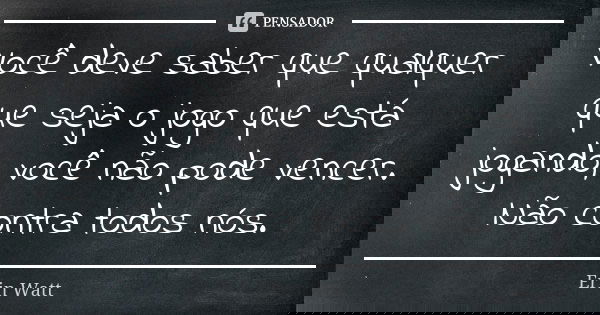 PENSADOR
Você deve saber que qualquer
que seja o jogo que está
jogando, você não pode vencer.
Não contra todos nós.
Erin Watt